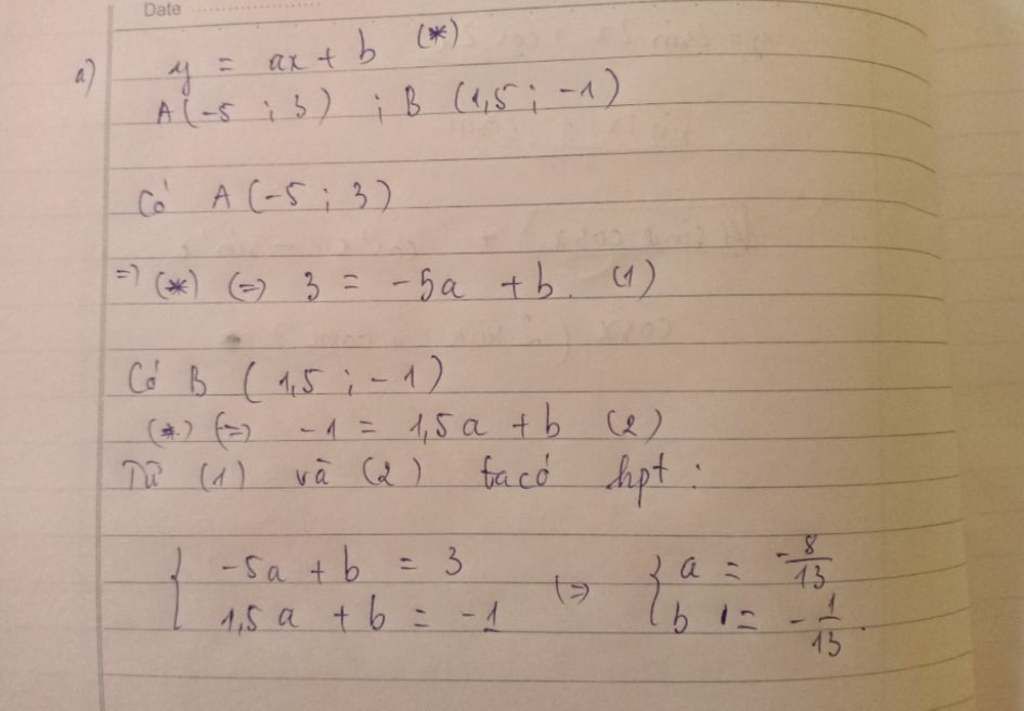 Date
a) y = ax + b (*)
A(-5 ; 3) ; B (1,5 ; -1)
Có A (-5 ; 3)
=> (*) (=) 3 = -5a + b. (1)
Có B (1,5 ; -1)
(*) (=) -1 = 1,5a + b (2)
Từ (1) và (2) ta có hpt :
{ -5a + b = 3 (=) { a = -8/13
{ 1,5a + b = -1 { b = -1/13.